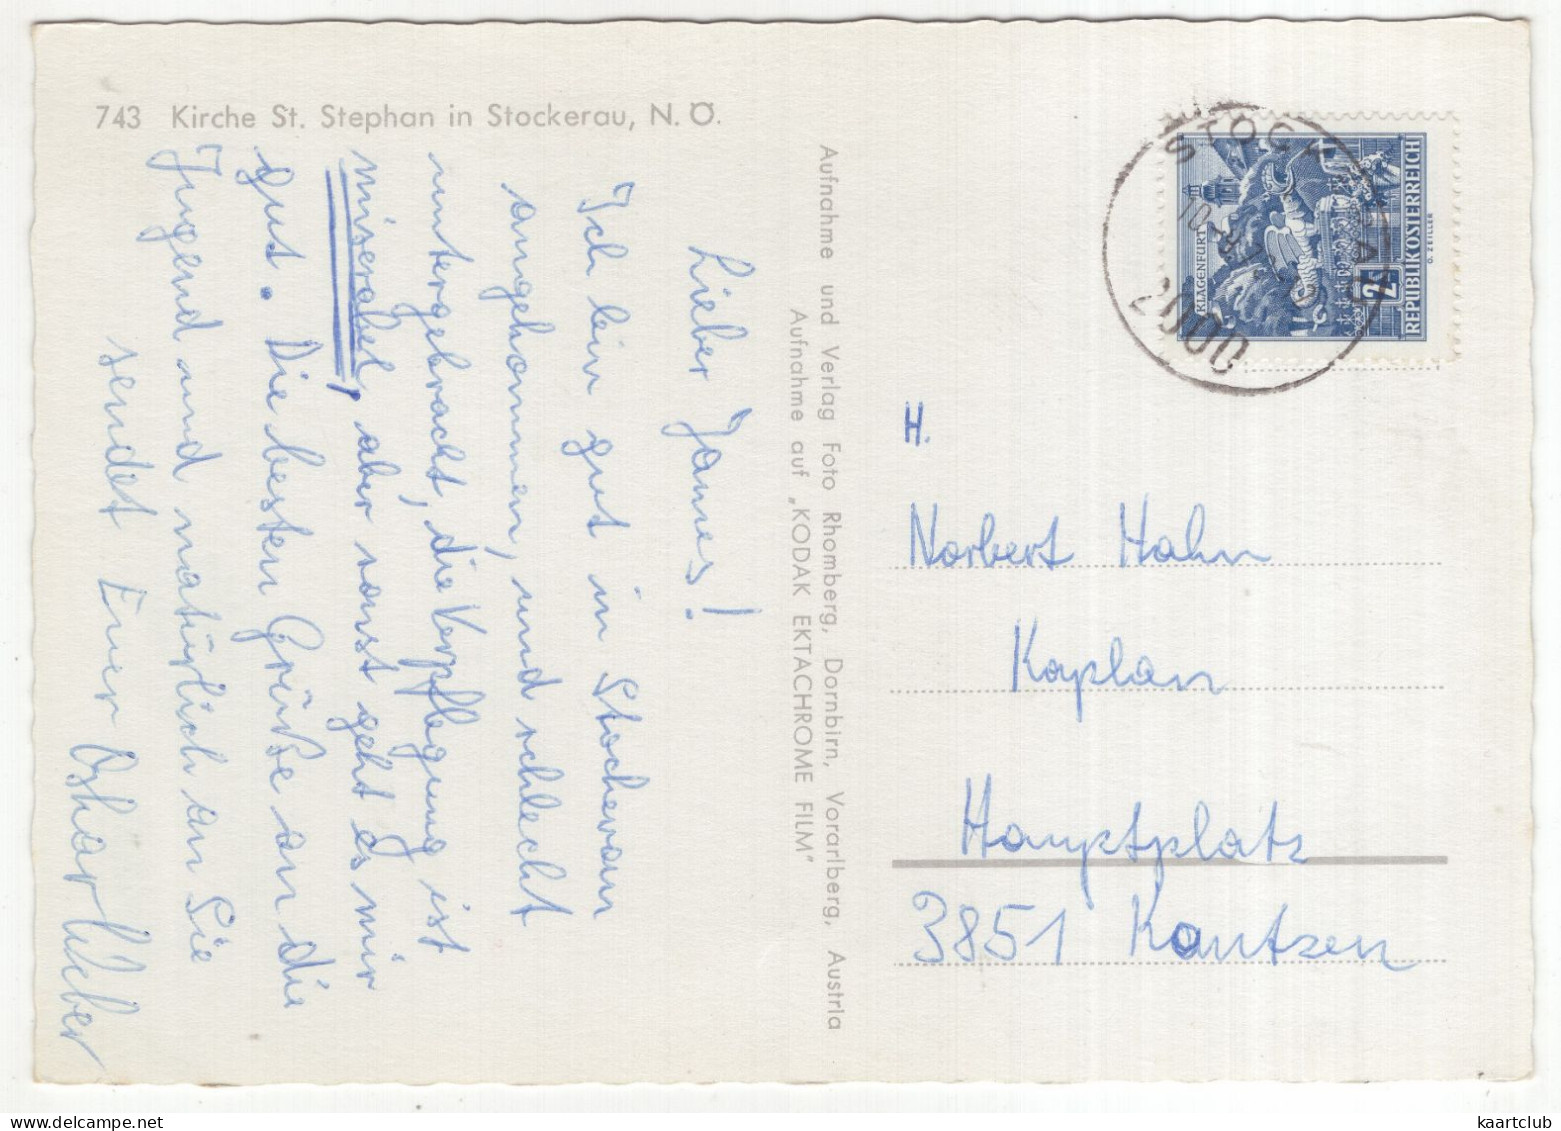 743 Kirche St. Stephan in Stockerau, N. Ö.
Lieber James!
Ich bin gut in Stockerau
angekommen, und schlecht
untergebracht, die Verpflegung ist
miserabel, aber sonst geht es mir
gut. Die besten Grüße an die
Jugend und natürlich an Sie
sendet Euer Oskar Weber
Aufnahme und Verlag Foto Rhomberg, Dornbirn, Vorarlberg, Austria
Aufnahme auf „KODAK EKTACHROME FILM"
KLAGENFURT
2S
REPUBLIK ÖSTERREICH
STOCKERAU
2000
H.
Norbert Hahn
Kaplan
Hauptplatz
3851 Kautzen
kaartclub